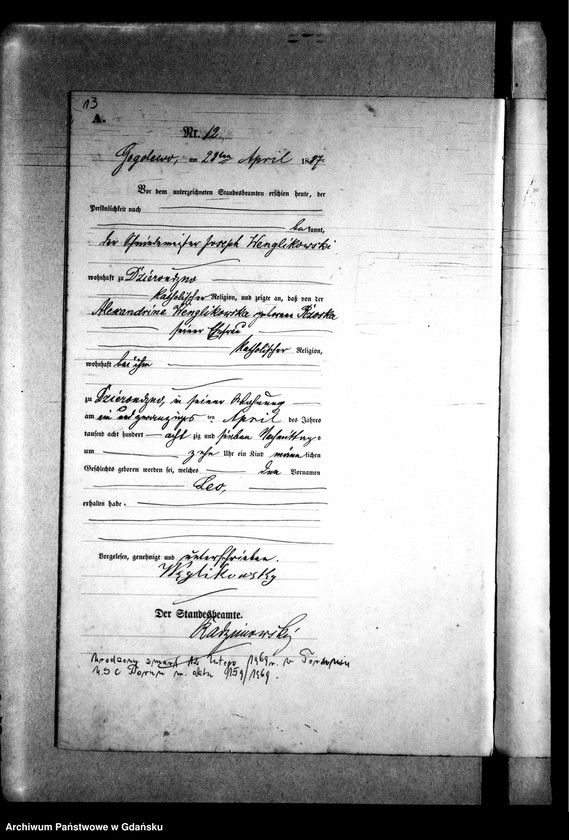 13
A.
Nr. 12.
Gogolewo, am 28ten April 1887.
Vor dem unterzeichneten Standesbeamten erschien heute, der
Persönlichkeit nach
bekannt,
der Schmiedemeister Joseph Wenglikowski
wohnhaft zu Dzierondzno
katholischer Religion, und zeigte an, daß von der
Alexandrine Wenglikowska geborenen
seiner Ehefrau
katholischer Religion,
wohnhaft bei ihm
zu Dzierondzno, in seiner Wohnung
am ein und zwanzigsten April des Jahres
tausend acht hundert achtzig und sieben Nachmittags
um zehn Uhr ein Kind männlichen
Geschlechts geboren worden sei, welches den Vornamen
Leo,
erhalten habe.
Vorgelesen, genehmigt und unterschrieben.
Węglikowsky
Der Standesbeamte.
Radzimowski
Urodzony zmarł 12 lutego 1969 r. w Toruniu
USC Toruń nr. aktu 159/1969.
Archiwum Państwowe w Gdańsku